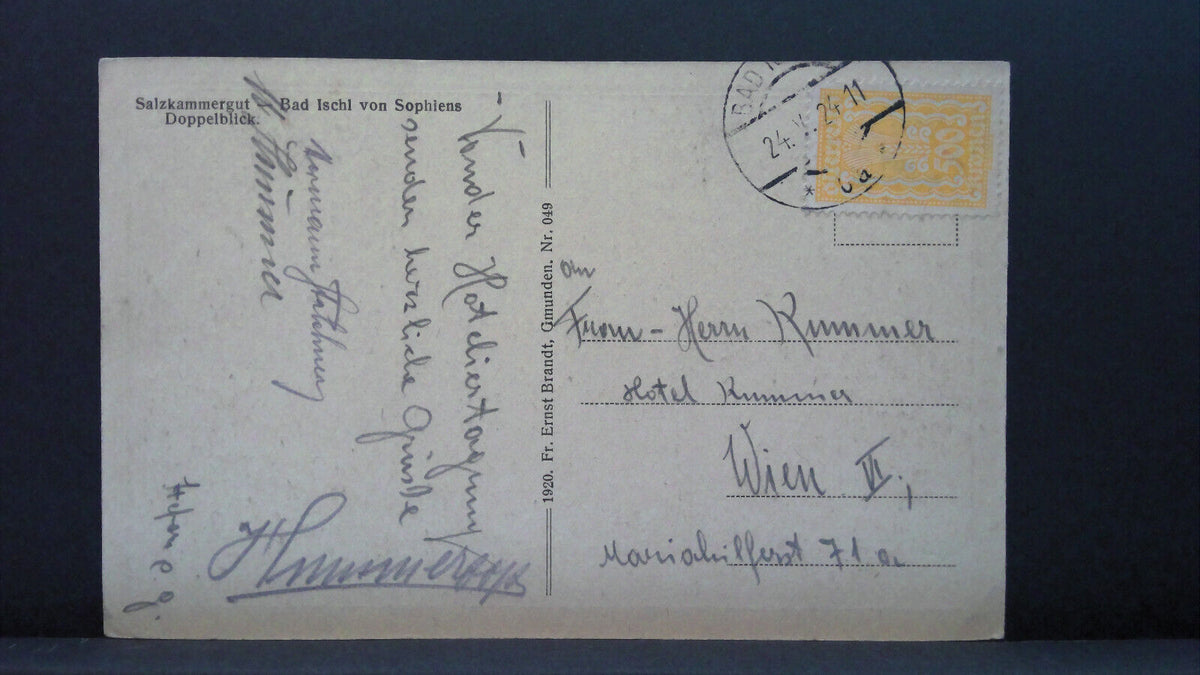 Salzkammergut Bad Ischl von Sophiens
Doppelblick.
Von der Hoteliertagung
senden herzliche Grüsse
1920. Fr. Ernst Brandt, Gmunden. Nr. 049
BAD
24. V. 24 11
* a
500
an
Frau - Herrn Kummer
Hotel Kummer
Wien VI.,
Mariahilferst 71 a